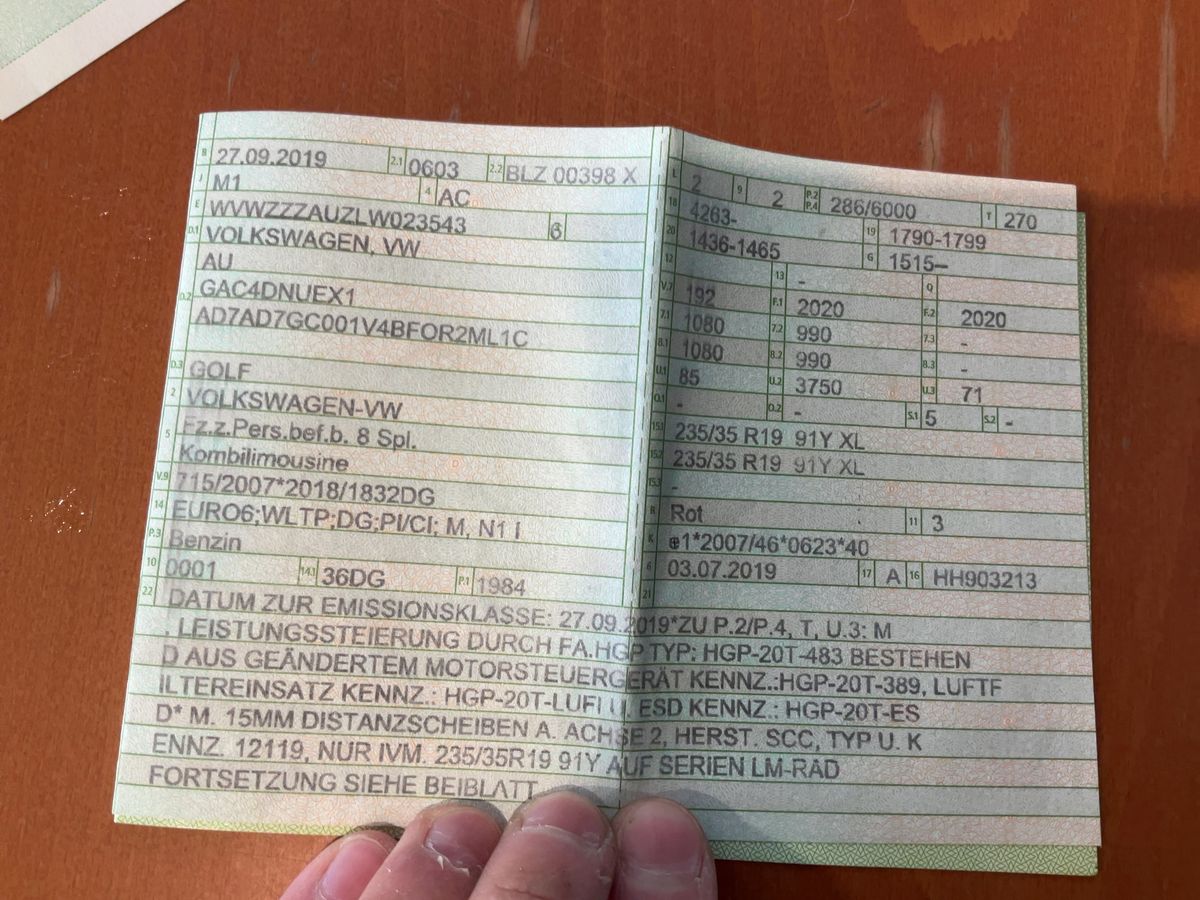 B 27.09.2019 2.1 0603 2.2 BLZ 00398 X
J M1 4 AC
E WVWZZZAUZLW023543 3 6
D.1 VOLKSWAGEN, VW
AU
D.2 GAC4DNUEX1
AD7AD7GC001V4BFOR2ML1C
D.3 GOLF
2 VOLKSWAGEN-VW
5 Fz.z.Pers.bef.b. 8 Spl.
Kombilimousine
V.9 715/2007*2018/1832DG
14 EURO6;WLTP;DG;PI/CI; M, N1 I
P.3 Benzin
10 0001 14.1 36DG P.1 1984
L 2 9 2 P.2 P.4 286/6000 T 270
18 4263- 19 1790-1799
20 1436-1465 G 1515–
12 13 - Q
V.7 192 F.1 2020 F.2 2020
7.1 1080 7.2 990 7.3 -
8.1 1080 8.2 990 8.3 -
U.1 85 U.2 3750 U.3 71
O.1 - O.2 - S.1 5 S.2 -
15.1 235/35 R19 91Y XL
15.2 235/35 R19 91Y XL
15.3 -
R Rot 11 3
K e1*2007/46*0623*40
6 03.07.2019 17 A 16 HH903213
21
22 DATUM ZUR EMISSIONSKLASSE: 27.09.2019*ZU P.2/P.4, T, U.3: M
. LEISTUNGSSTEIERUNG DURCH FA.HGP TYP: HGP-20T-483 BESTEHEN
D AUS GEÄNDERTEM MOTORSTEUERGERÄT KENNZ.:HGP-20T-389, LUFTF
ILTEREINSATZ KENNZ.: HGP-20T-LUFI U. ESD KENNZ.: HGP-20T-ES
D* M. 15MM DISTANZSCHEIBEN A. ACHSE 2, HERST. SCC, TYP U. K
ENNZ. 12119, NUR IVM. 235/35R19 91Y AUF SERIEN LM-RAD
FORTSETZUNG SIEHE BEIBLATT